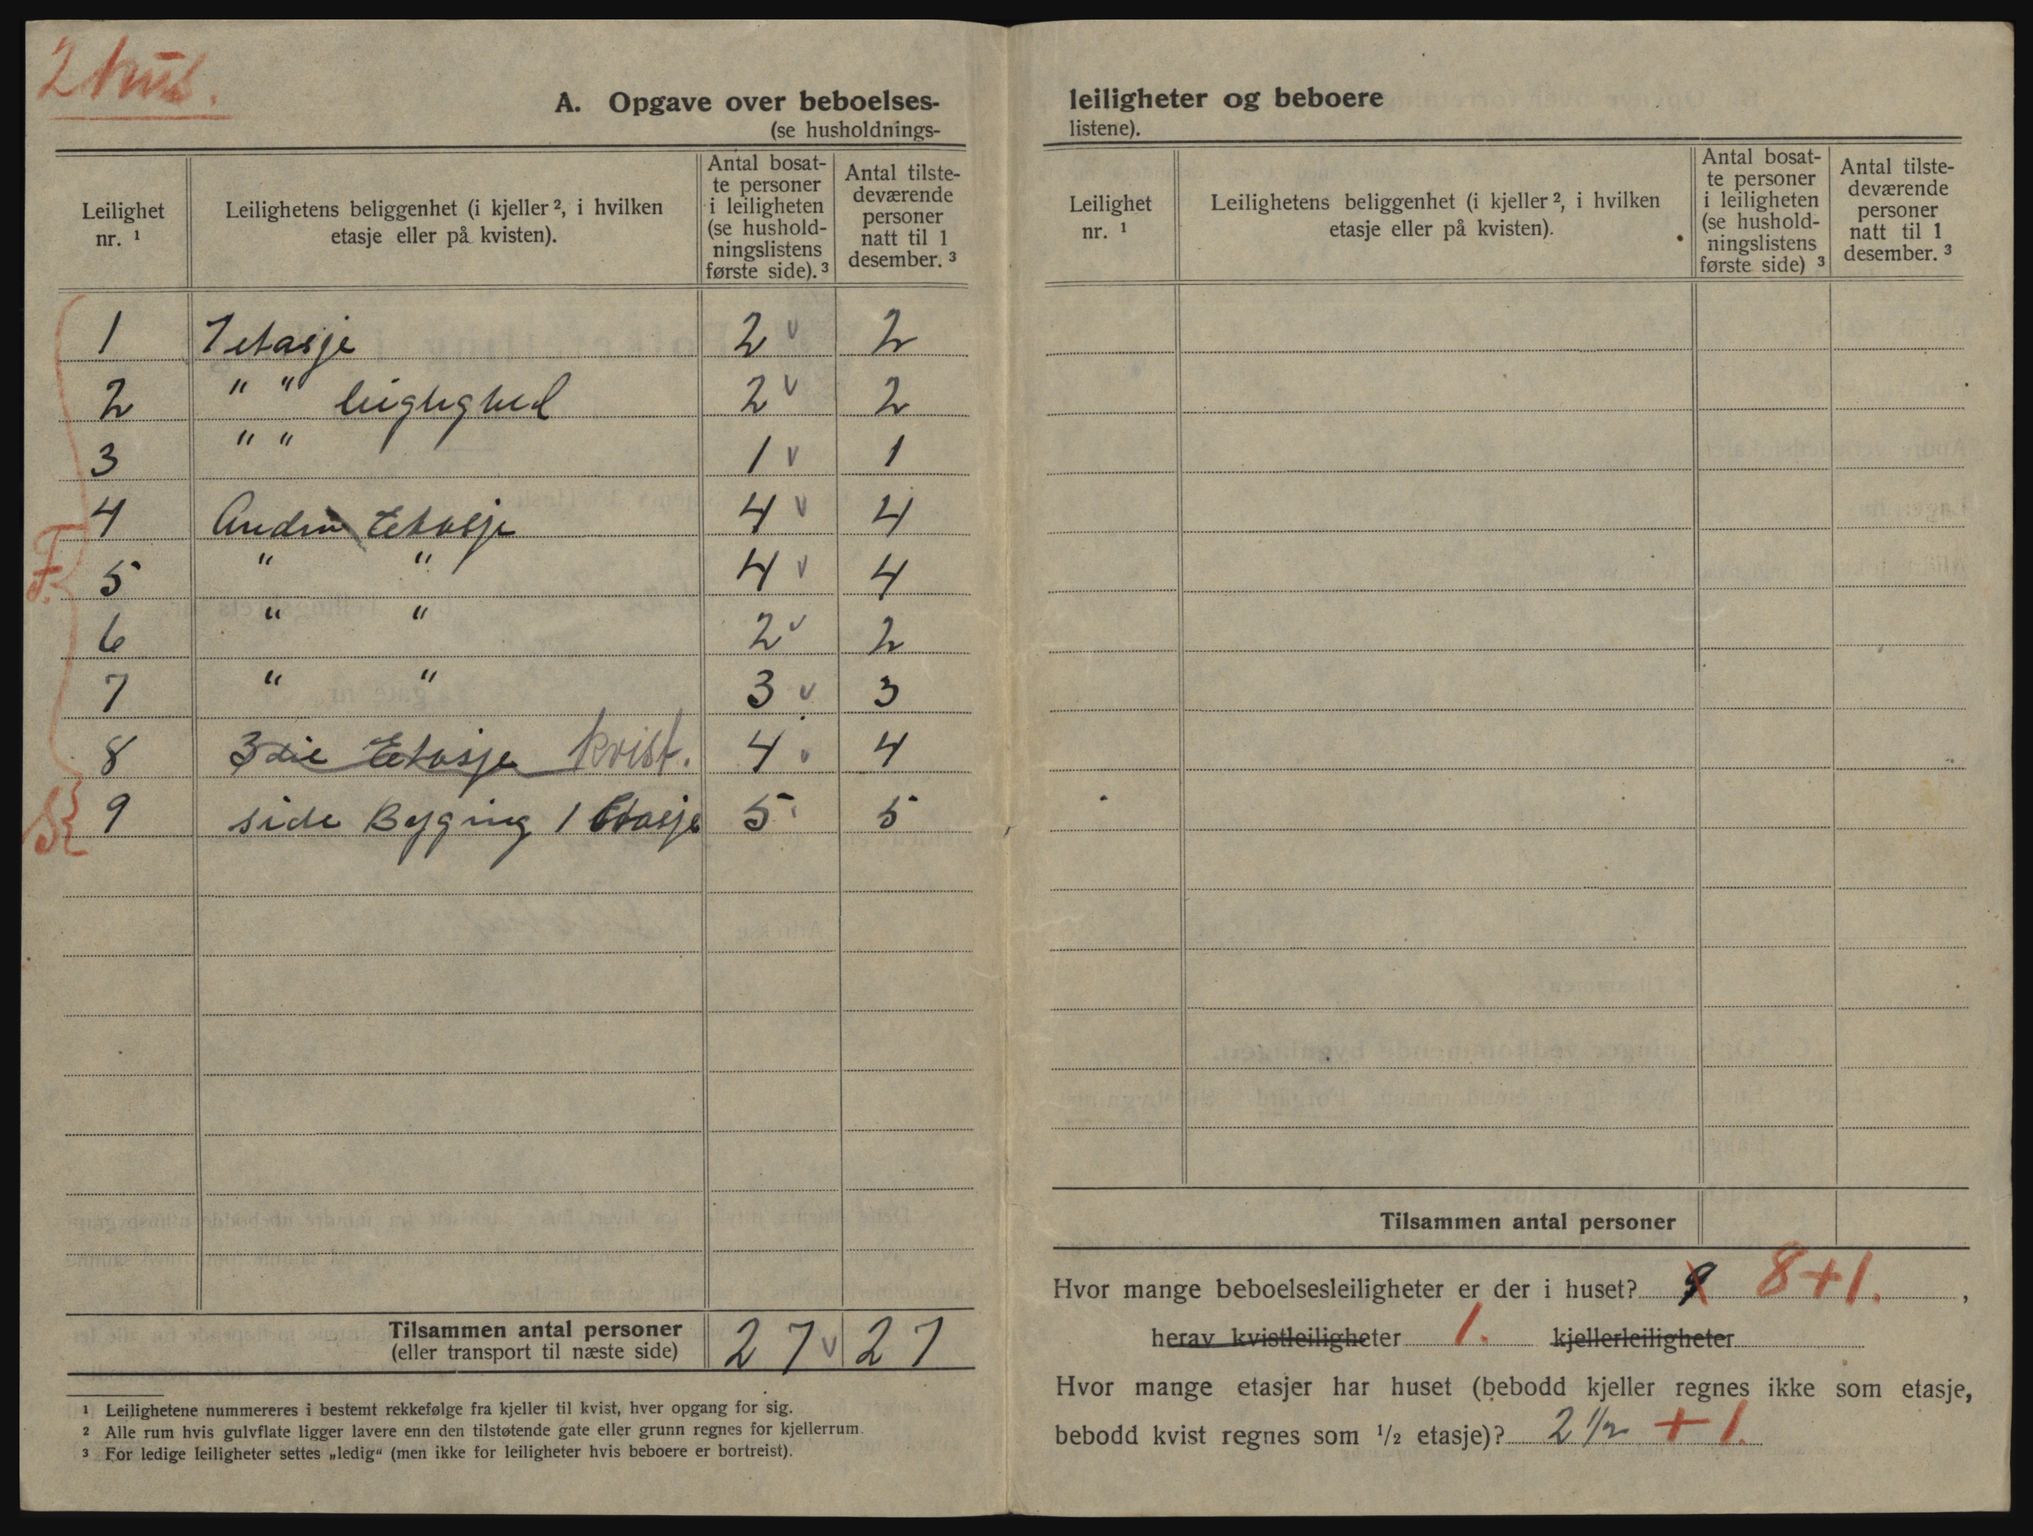 2 hus.
A. Opgave over beboelses-
(se husholdnings-
Leilighet nr. ¹
Leilighetens beliggenhet (i kjeller ², i hvilken
etasje eller på kvisten).
Antal bosat-
te personer
i leiligheten
(se hushold-
ningslistens
første side). ³
Antal tilste-
deværende
personer
natt til 1
desember. ³
1 1 etasje 2 v 2
2 " " leighghed 2 v 2
3 " " 1 v 1
4 Andre Etasje 4 v 4
F. 5 " " 4 v 4
6 " " 2 v 2
7 " " 3 v 3
8 3die Etasje kvist. 4 v 4
S. 9 side Bygning 1 Etasje 5 5
Tilsammen antal personer
(eller transport til næste side)
27 v 27
¹ Leilighetene nummereres i bestemt rekkefølge fra kjeller til kvist, hver opgang for sig.
² Alle rum hvis gulvflate ligger lavere enn den tilstøtende gate eller grunn regnes for kjellerrum.
³ For ledige leiligheter settes „ledig“ (men ikke for leiligheter hvis beboere er bortreist).
leiligheter og beboere
listene).
Leilighet
nr. ¹
Leilighetens beliggenhet (i kjeller ², i hvilken
etasje eller på kvisten).
Antal bosat-
te personer
i leiligheten
(se hushold-
ningslistens
første side) ³
Antal tilste-
deværende
personer
natt til 1
desember. ³
Tilsammen antal personer
Hvor mange beboelsesleiligheter er der i huset? 9 8+1. ,
herav kvistleiligheter 1. kjellerleiligheter
Hvor mange etasjer har huset (bebodd kjeller regnes ikke som etasje,
bebodd kvist regnes som ½ etasje)? 2 ½ + 1.